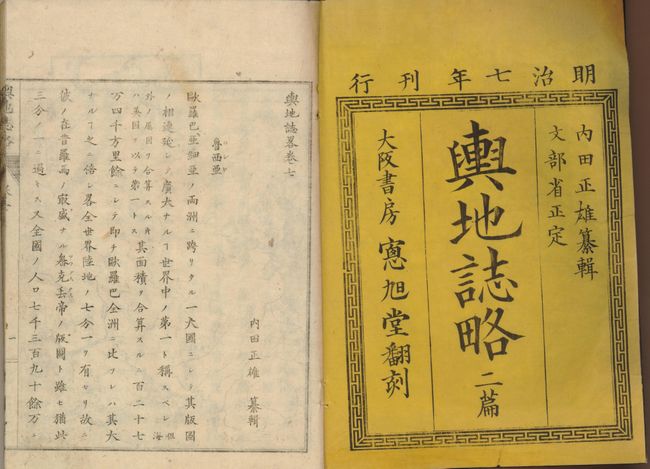 明治七年刊行
内田正雄纂輯
文部省正定
輿地誌略 二篇
大阪書房寶旭堂翻刻
輿地誌畧卷七
内田正雄 纂輯
魯西亞
歐羅巴亞細亞ノ兩洲ニ跨リタル一大國ニシテ其版圖
ノ相連延シテ廣大ナルヿ世界中ノ第一ト稱スベシ但海
外ノ屬國ヲ合算スル時
ハ英國ヲ以テ第一トス其面積ヲ合算スルニ百二十七
万四千方里餘ニシテ即チ歐羅巴全洲ニ比フレハ其大
ナルヿ之ニ倍シ畧全世界陸地ノ七分一ヲ有セリ故ニ
彼ノ在昔羅馬ノ最盛ナル彖克丢帝ノ版圖ト雖モ猶此
三分ノ一ニ過キス又全國ノ人口七千三百九十餘万ニ
輿地誌略
一